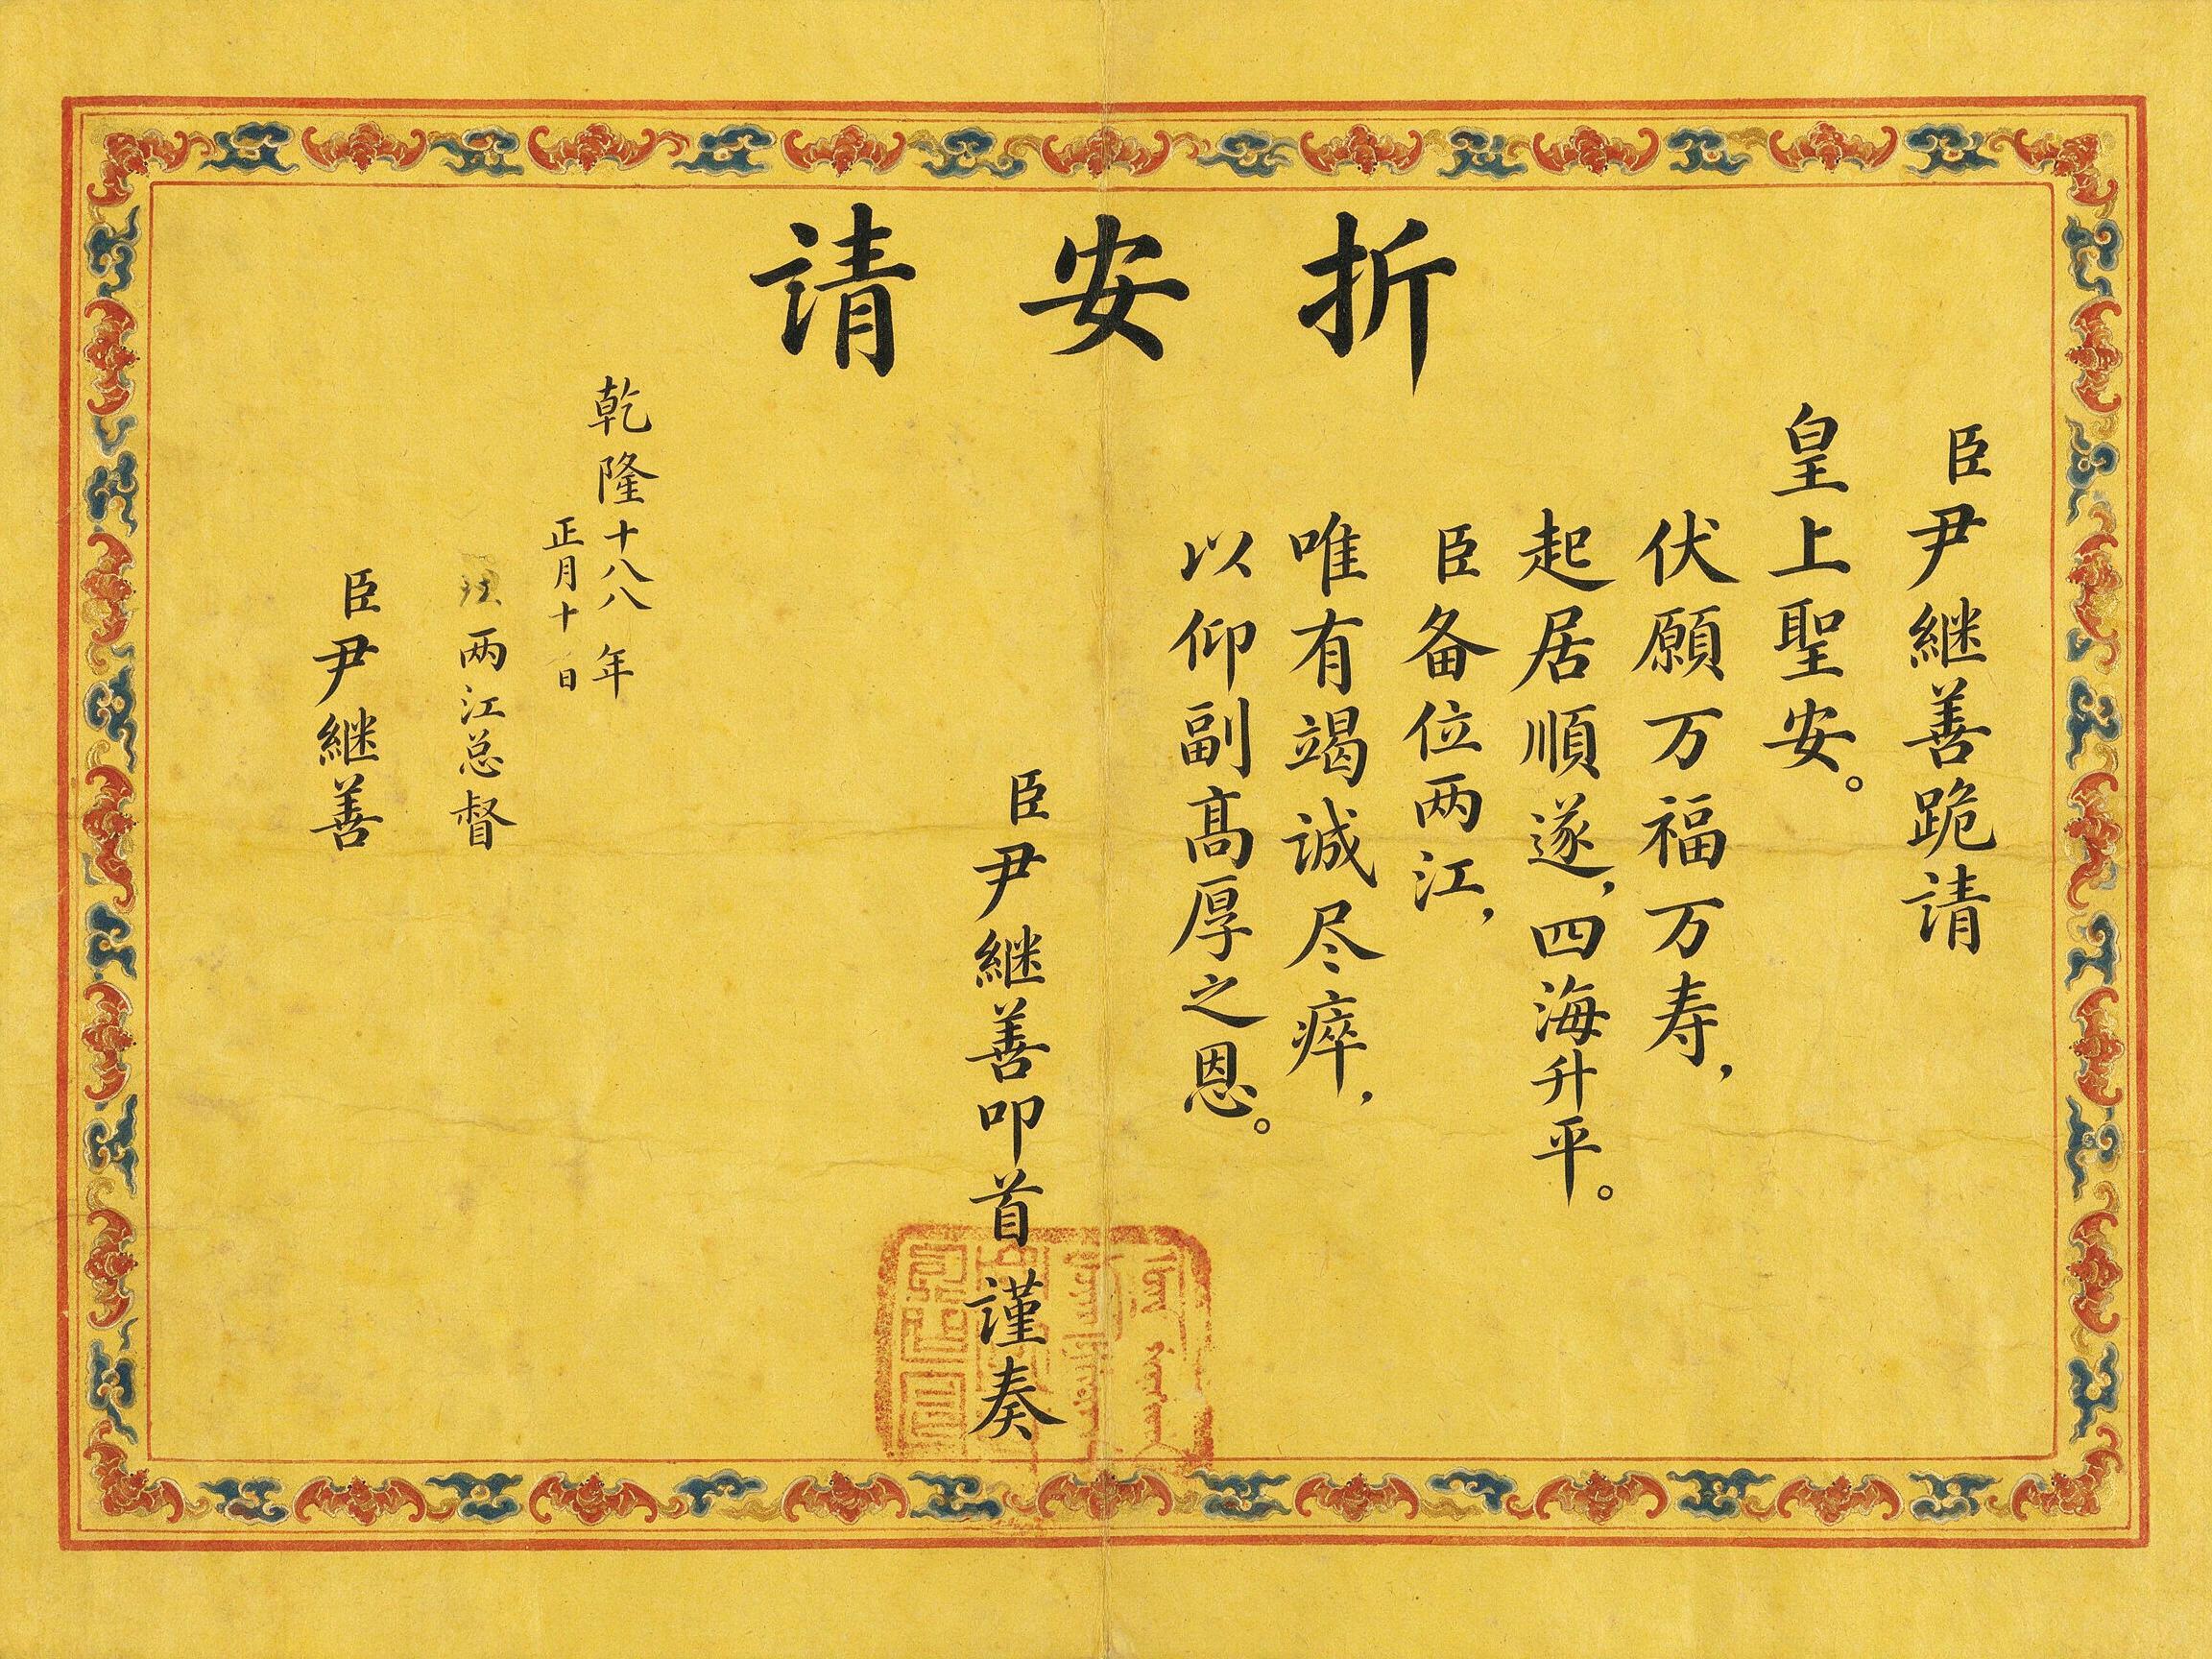 請安折
臣尹継善跪請
皇上聖安。
伏願万福万寿，
起居順遂，四海升平。
臣备位两江，
唯有竭誠尽瘁，
以仰副髙厚之恩。
臣尹継善叩首謹奏
乾隆十八八年
正月十日
两江总督
臣尹継善